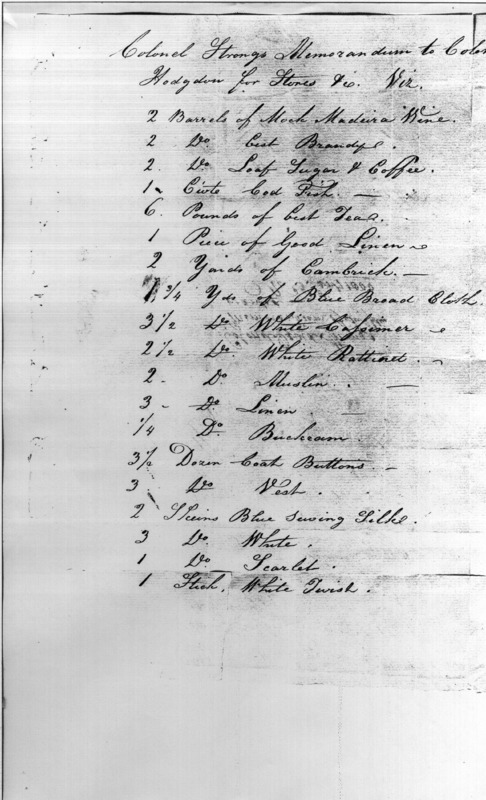 Colonel Strongs Memorandum to Colon
Hodgdon for Stores &c. Viz.
2 Barrels of Mock Madeira Wine.
2 Do best Brandy.
2. Do Loaf Sugar & Coffee.
1 Cwts Cod Fish.
6. Pounds of best Tea.
1 Piece of Good Linen
2 Yards of Cambrick.
1 3/4 Yds of Blue Broad Cloth
3 1/2 Do White Cassimer
2 1/2 Do. White Rattinet.
2 Do Muslin.
3 Do Linen.
1/4 Do Buckram
3 1/2 Dozen Coat Buttons
3 Do Vest.
2 Skeins Blue Sewing Silk.
3 Do White.
1 Do Scarlet.
1 Stick. White Twist.